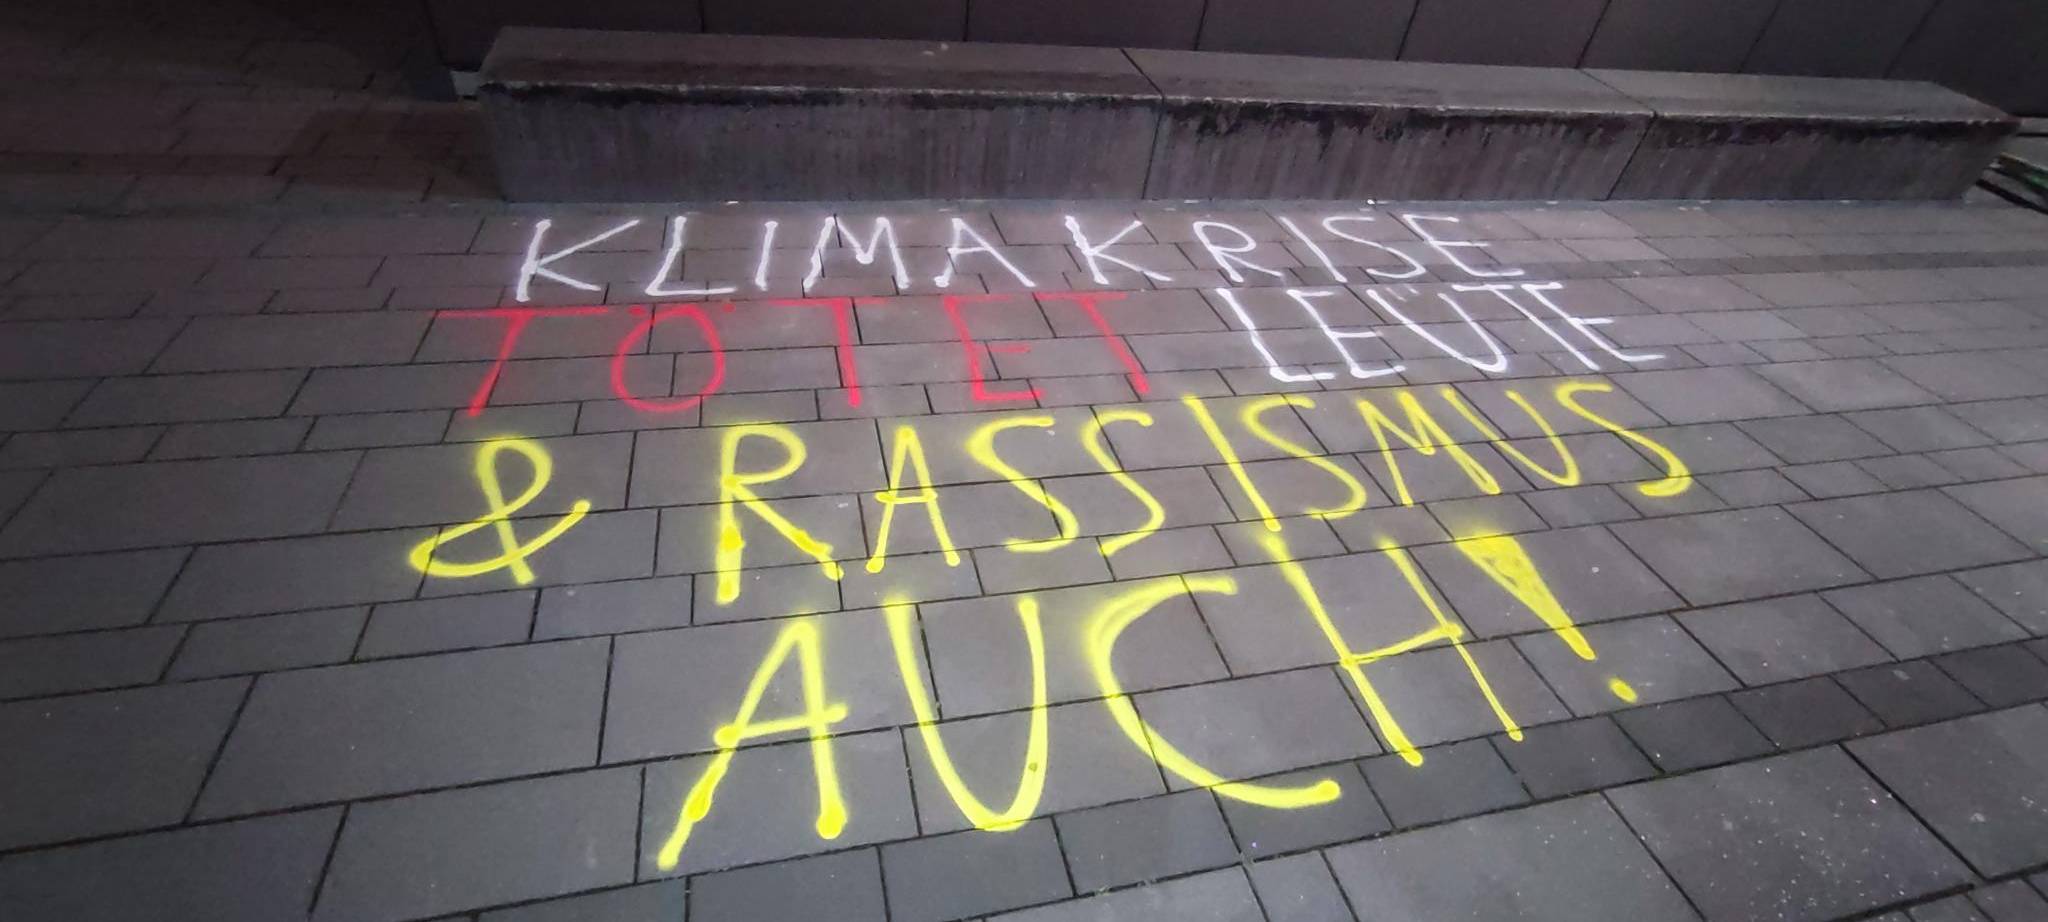 KLIMAKRISE
TÖTET LEUTE
& RASSISMUS
AUCH!